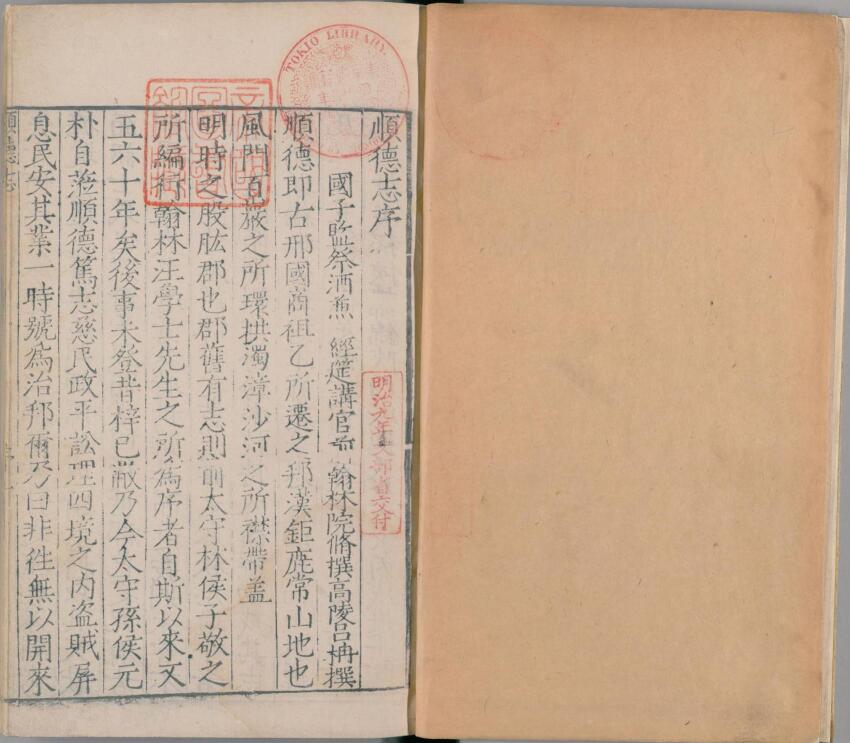 順德志序
國子監祭酒兼 經筵講官前翰林院脩撰高陵呂柟撰
順德即古邢國商祖乙所遷之邦漢鉅鹿常山地也
風門百巖之所環拱濁漳沙河之所襟帶盖
明時之股肱郡也郡舊有志則前太守林侯子敬之
所編行翰林汪學士先生之所為序者自斯以來又
五六十年矣後事未登昔梓已敝乃今太守孫侯元
朴自蒞順德篤志慈民政平訟理四境之内盗賊屏
息民安其業一時號為治邦爾乃曰非徃無以開來
順德志
序
一
TOKIO LIBRARY
明治九年文部省交付